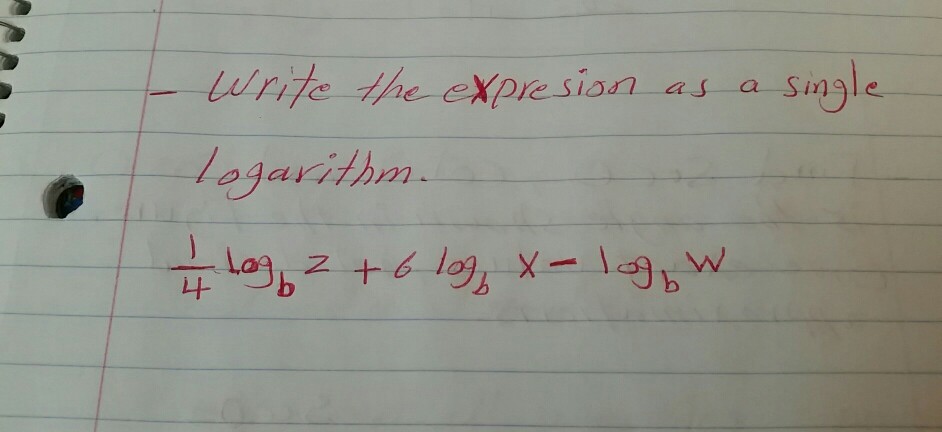 - Write the expresion as a single
logarithm.
1/4 log_b z + 6 log_b x - log_b w